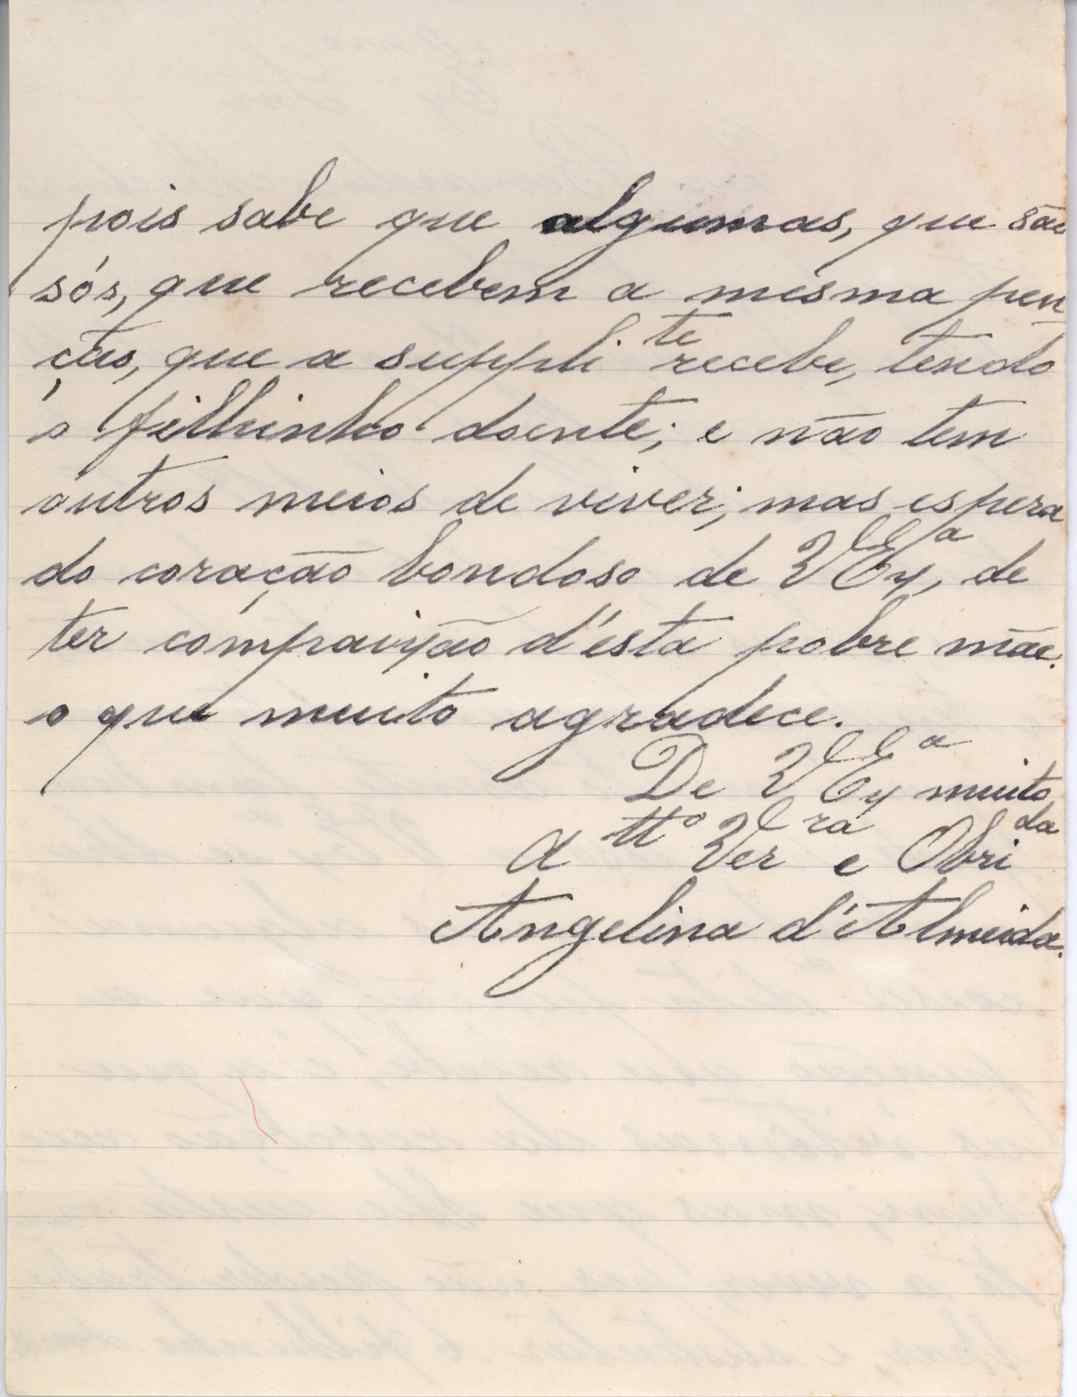 pois sabe que algumas, que são
sós, que recebem a mesma pen
ção, que a suppli te recebe, tendo
o filhinho doente; e não tem
outros meios de viver; mas espera
do coração bondoso de VExª, de
ter compaixão d'esta pobre mãe.
o que muito agradece.
De VExª muito
Attº Verra e Obrida
Angelina d'Almeida.